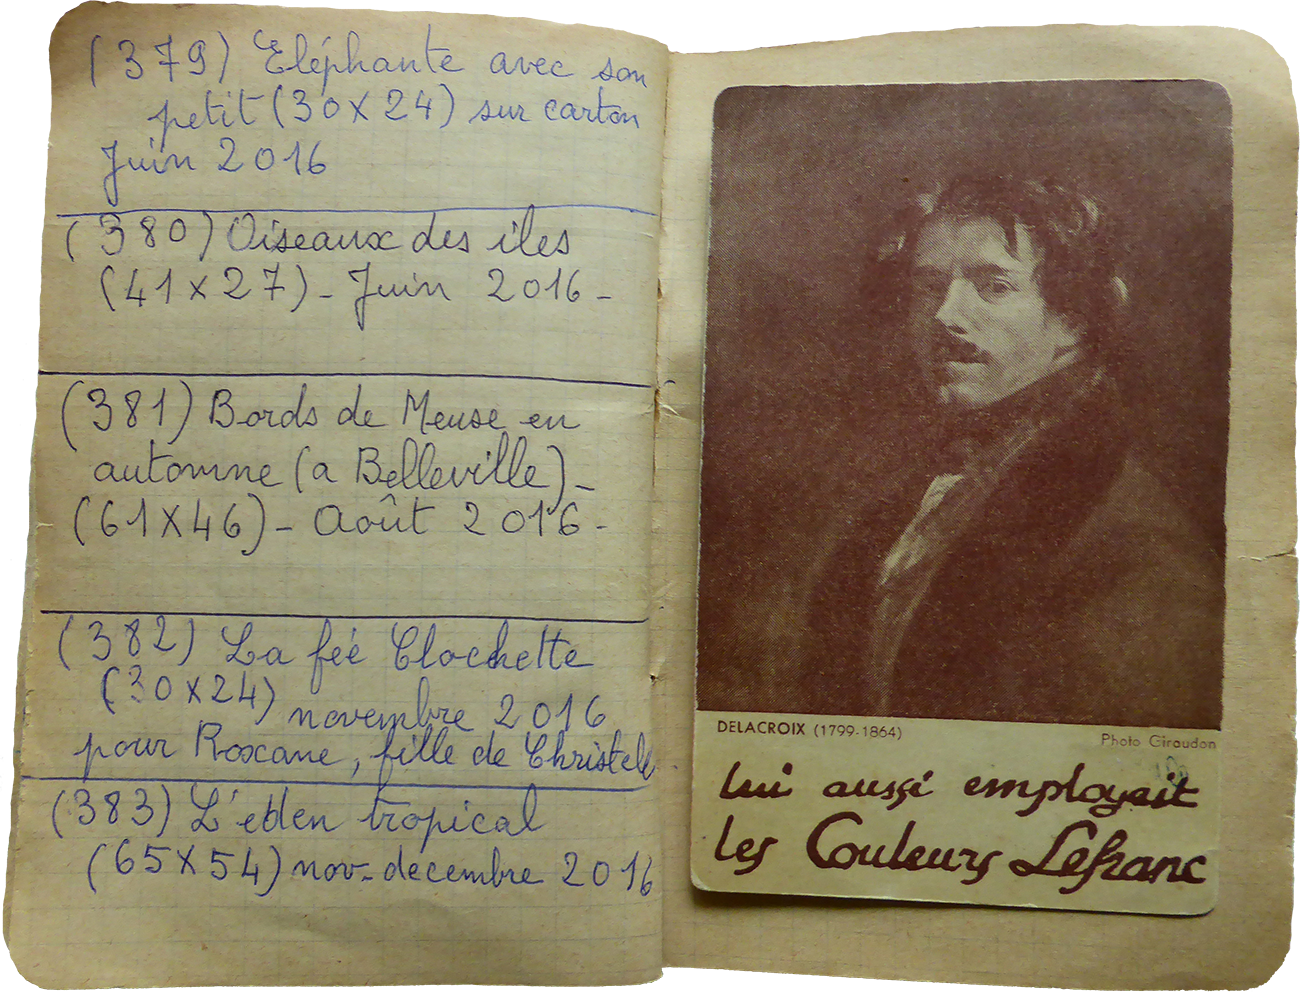 (379) Eléphante avec son
petit (30x24) sur carton
Juin 2016
(380) Oiseaux des iles
(41x27) - Juin 2016 -
(381) Bords de Meuse en
automne (a Belleville) -
(61X46) - Août 2016 -
(382) La fée Clochette
(30x24) novembre 2016
pour Roxane, fille de Christelle
(383) L'eden tropical
(65X54) nov-decembre 2016
DELACROIX (1799-1864)
Photo Giraudon
lui aussi employait
les Couleurs Lefranc